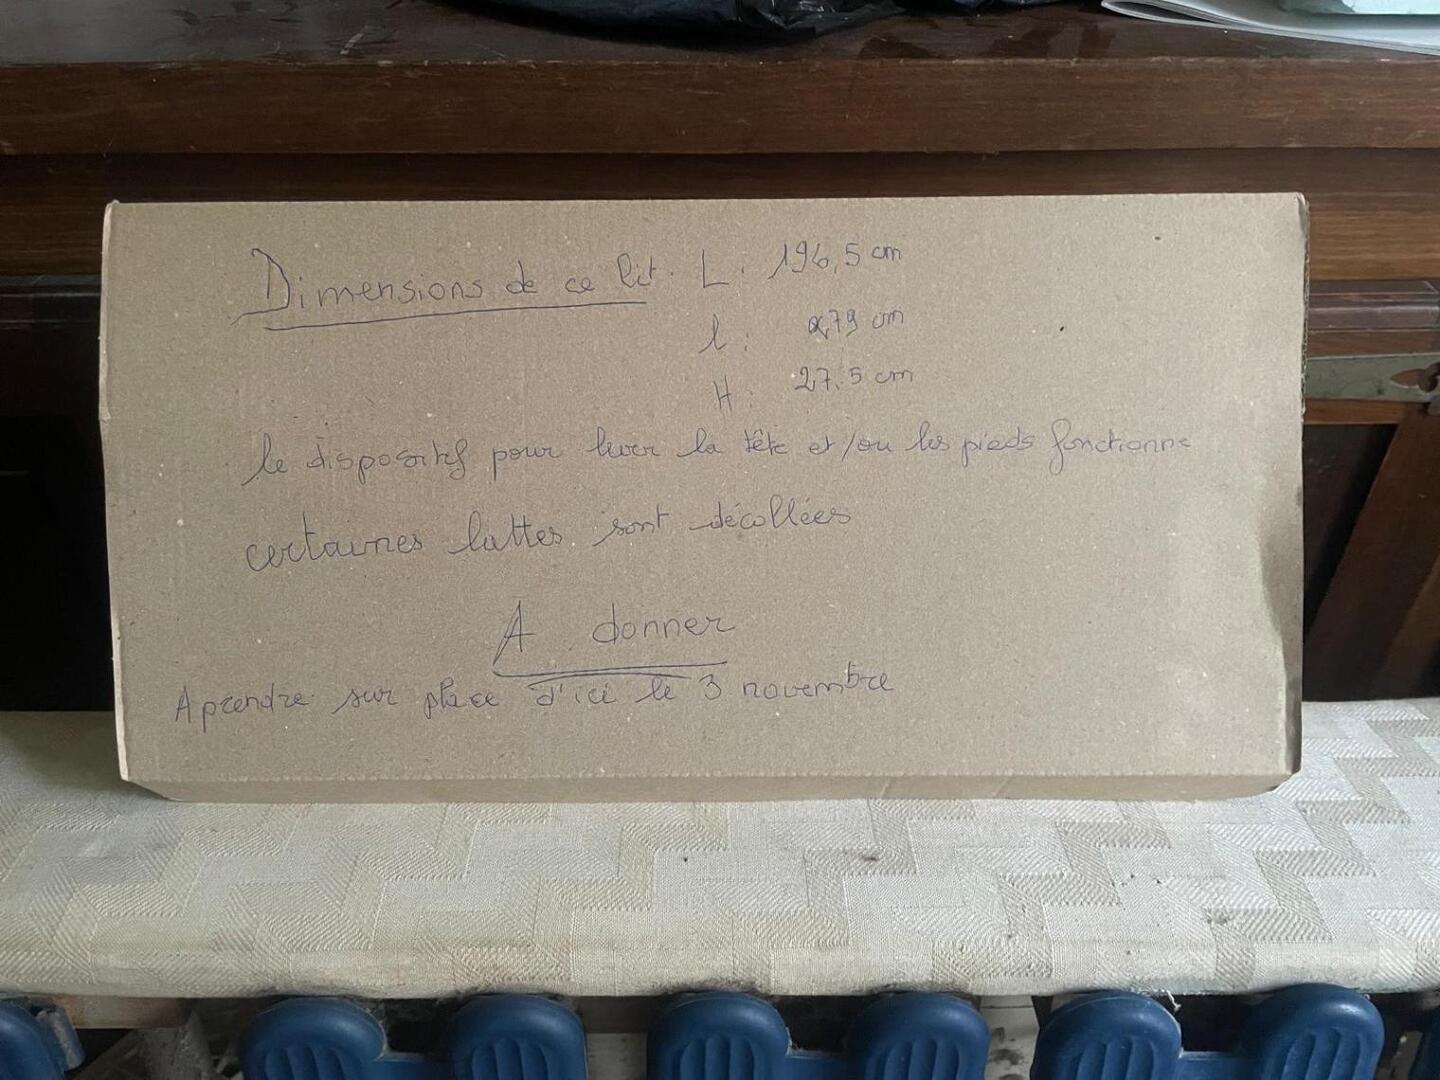 Dimensions de ce lit. L: 196,5 cm
l: 79 cm
H: 27,5 cm
le dispositif pour lever la tête et/ou les pieds fonctionne
certaines lattes sont décollées
A donner
A prendre sur place d'ici le 3 novembre